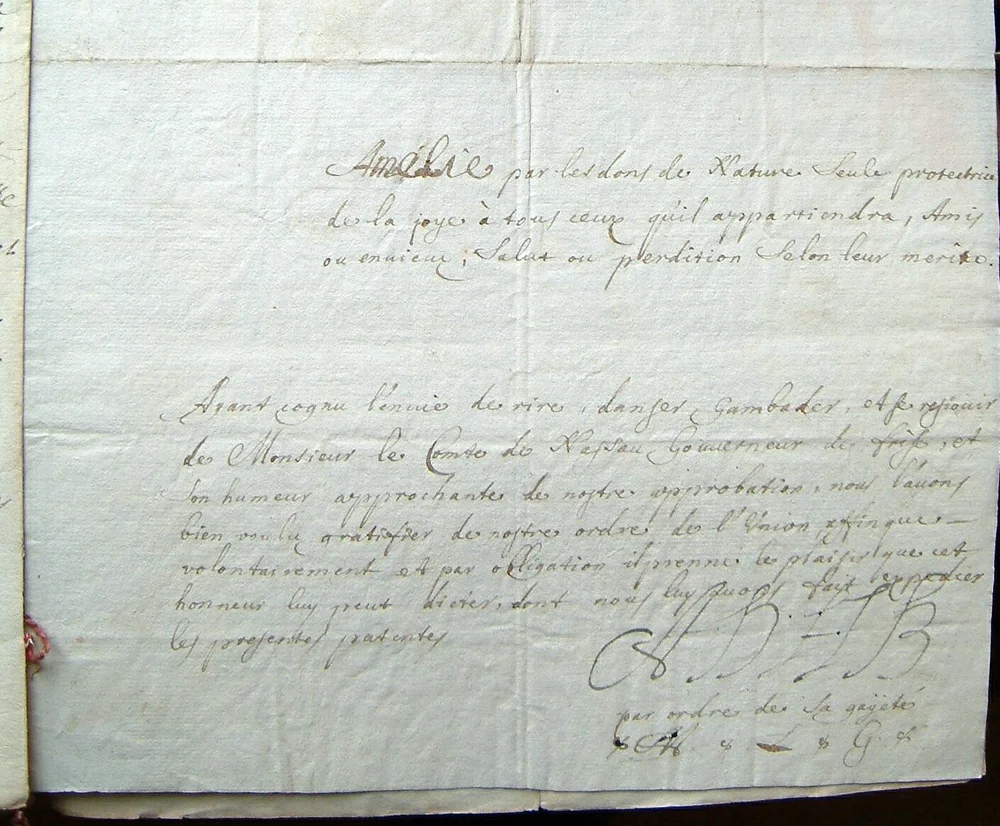 Amélie par les dons de Nature Seule protectrice
de la joye à tous ceux qu'il appartiendra, Amis
ou envieux, Salut ou perdition Selon leur merite.
Ayant cognu l'envie de rire, danser, Gambader, et se resjouir
de Monsieur le Comte de Nassau Gouverneur de frise, et
son humeur approchante de nostre approbation, nous l'avons
bien voulu gratifier de nostre ordre de l'Union affinque
volontairement et par obligation il prenne le plaisir que cet
honneur luy peut dicter, dont nous luy avons fait expedier
les presentes patentes
par ordre de Sa gayeté